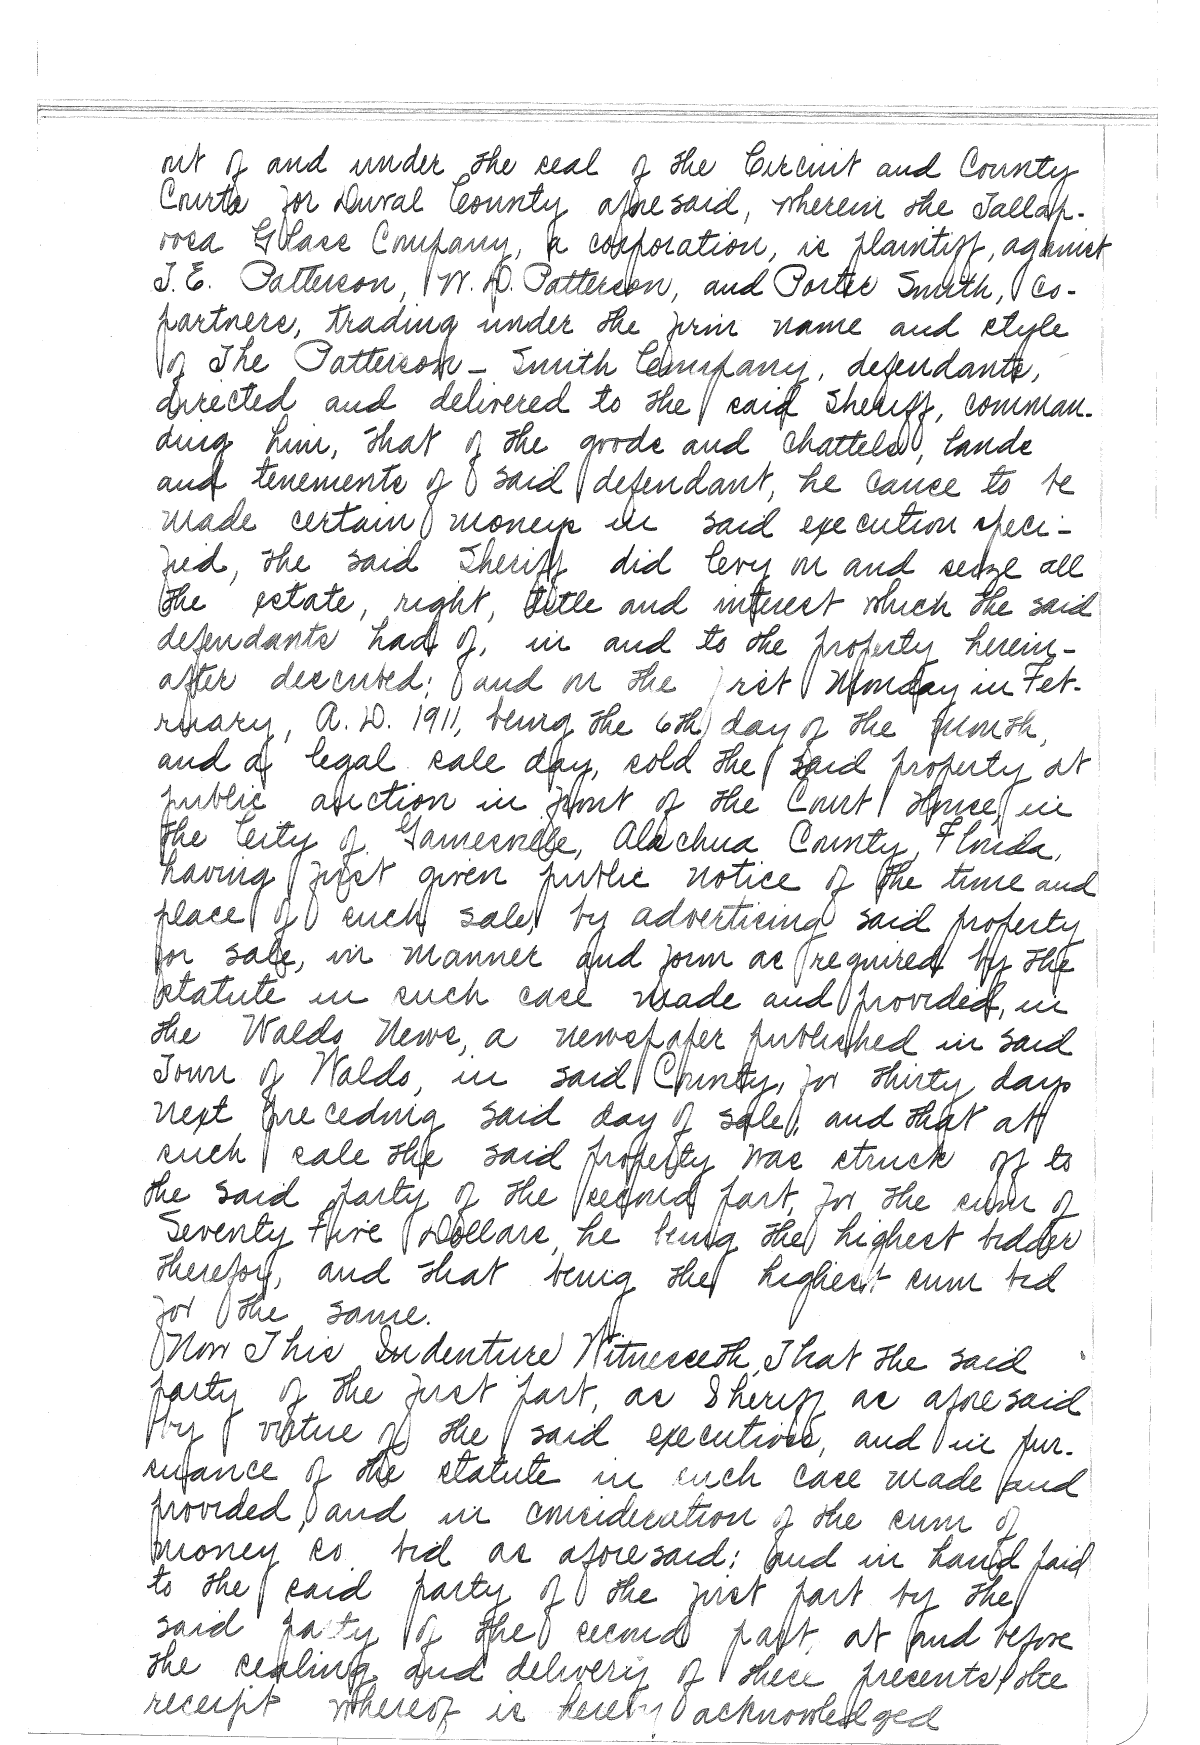 out of and under the seal of the Circuit and County
Courts for Duval County aforesaid, wherein the Tallap-
oosa Glass Company, a corporation, is plaintiff, against
T. E. Patterson, W. D. Patterson, and Porter Smith, co-
partners, trading under the firm name and style
of The Patterson - Smith Company, defendants,
directed and delivered to the said Sheriff, comman-
ding him, that of the goods and chattels, lands
and tenements of said defendant, he cause to be
made certain moneys in said execution speci-
fied, the said Sheriff did levy on and seize all
the estate, right, title and interest which the said
defendants had of, in and to the property herein-
after described; and on the first Monday in Feb-
ruary, A. D. 1911, being the 6th day of the month,
and a legal sale day, sold the said property at
public auction in front of the Court House, in
the City of Gainesville, Alachua County, Florida,
having first given public notice of the time and
place of such sale, by advertising said property
for sale, in manner and form as required by the
statute in such case made and provided, in
the Waldo News, a newspaper published in said
Town of Waldo, in said County, for thirty days
next preceding said day of sale, and that at
such sale the said property was struck off to
the said party of the second part, for the sum of
Seventy Five Dollars, he being the highest bidder
therefor, and that being the highest sum bid
for the same.
Now This Indenture Witnesseth, That the said
party of the first part, as Sheriff as aforesaid
by virtue of the said executions, and in pur-
suance of the statute in such case made and
provided, and in consideration of the sum of
money so bid as aforesaid; and in hand paid
to the said party of the first part by the
said party of the second part, at and before
the sealing and delivery of these presents, the
receipt whereof is hereby acknowledged